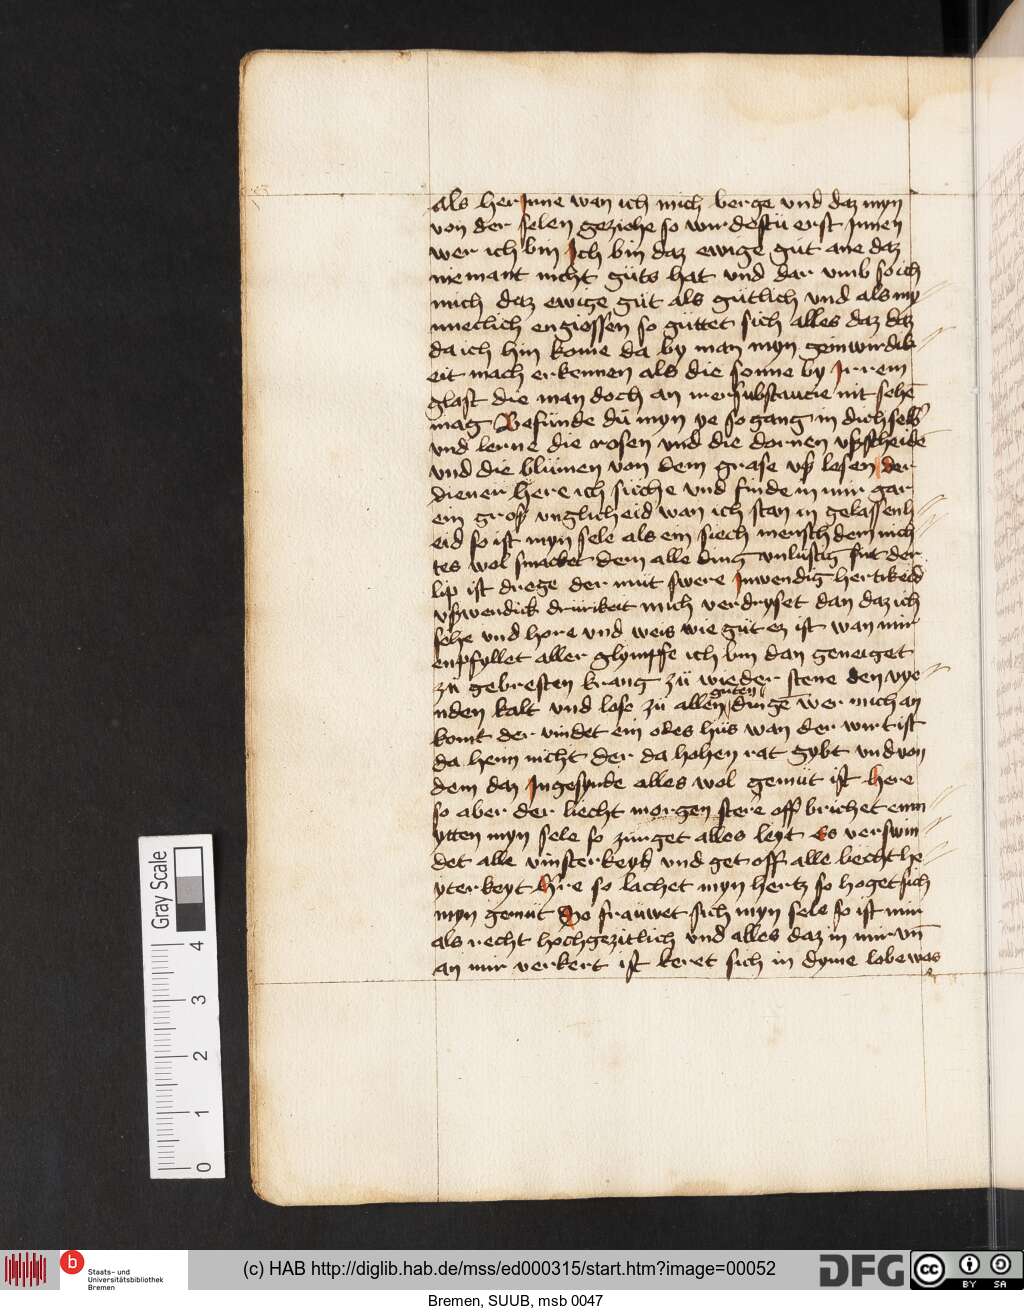 als her Inne wan ich mich berge und daz myn
von der selen geziehe so wurdestu erst Innen
wer ich bin Ich bin daz ewige gut ane daz
niemant nicht guts hat und dar umb so ich
mich daz ewige gut als gütlich und als my
nneclich engiessen so güttet sich alles daz daz
da ich hin kome da by man myn geinwirdik
eit mach erkennen als die sonne by Irrem
glast die man doch an irer substancie nit sehē
mag Befunde du myn ye so gang in dich selb
und lerne die rosen und die dornen ußscheidē
und die blümen von dem grase uß lesen der
diener here ich süche und finde in mir gar
ein groß unglicheid wan ich stan in gelassenh
eid so ist myn sele als ein siech mensch dem nich
tes wol smacket dem alle ding unlustig sint der
lip ist drege der müt swere Inwendig hertikeid
ußwendick drurikeit mich verdryset dan daz ich
sehe und hore und weis wie güt ez ist wan mir
enpfyllet aller glympfe ich bin dan geneiget
zü gebresten krang zü wieder stene den vye
nden kalt und lose zü allen guten dingē wer mich an
komt der vindet ein odes hüs wan der wirt ist
da heim nicht der da hohen rat gybt und von
dem daz Ingesynde alles wol gemüt ist here
so aber der liecht morgen stere off brichet enm
ytten myn sele so zürget alles leyt es verswin
det alle vinsterkeyt und get off alle liecht he
yterkeyt Hre so lachet myn hertz so hoget sich
myn gemüt So fraüwet sich myn sele so ist mir
als recht hochgezitlich und alles daz in mir vn̄
an mir verkert ist keret sich in dyme lobe was
Gray Scale
4
3
2
1
0
Staats- und
Universitätsbibliothek
Bremen
(c) HAB http://diglib.hab.de/mss/ed000315/start.htm?image=00052
DFG
cc BY SA
Bremen, SUUB, msb 0047